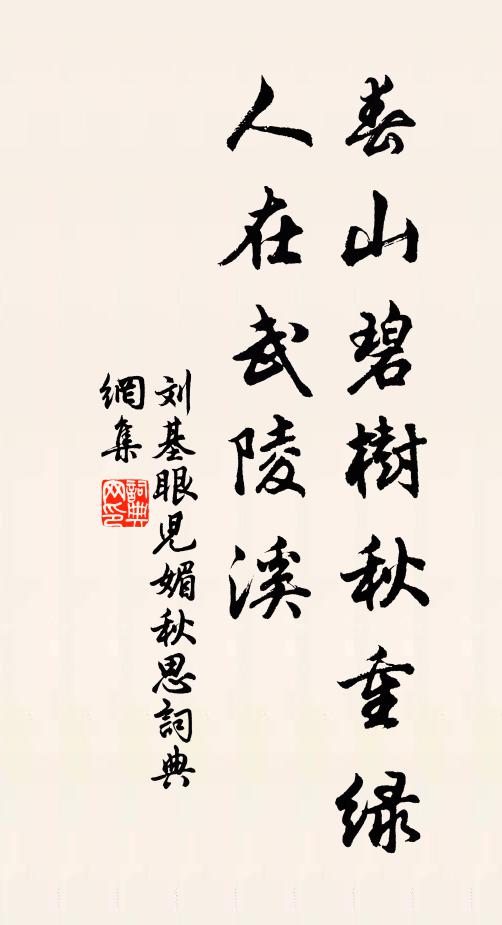 春山碧樹秋重绿
人在武陵溪
刘基眼児媚秋思詞典
網集
詞典
网印